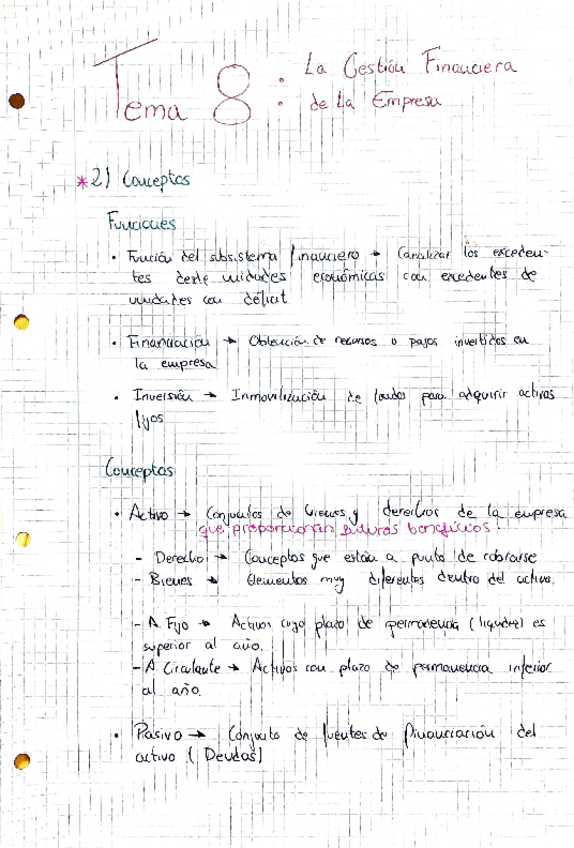 Tema 8 : La Gestión Financiera
de La Empresa
*2) Conceptos
Funciones
• Función del subsistema financiero → Canalizar los exceden-
tes desde unidades económicas con excedentes de
unidades con déficit
• Financiación → Obtención de recursos o pagos invertidos en
la empresa
• Inversión → Inmovilización de fondos para adquirir activos
fijos
Conceptos
• Activo → Conjuntos de bienes y derechos de la empresa
que proporcionan futuros beneficios.
- Derecho → Conceptos que están a punto de cobrarse
- Bienes → Elementos muy diferentes dentro del activo.
- A Fijo → Activos cuyo plazo de permanencia (liquidez) es
superior al año.
- A Circulante → Activos con plazo de permanencia inferior
al año.
• Pasivo → Conjunto de fuentes de financiación del
activo (Deudas)